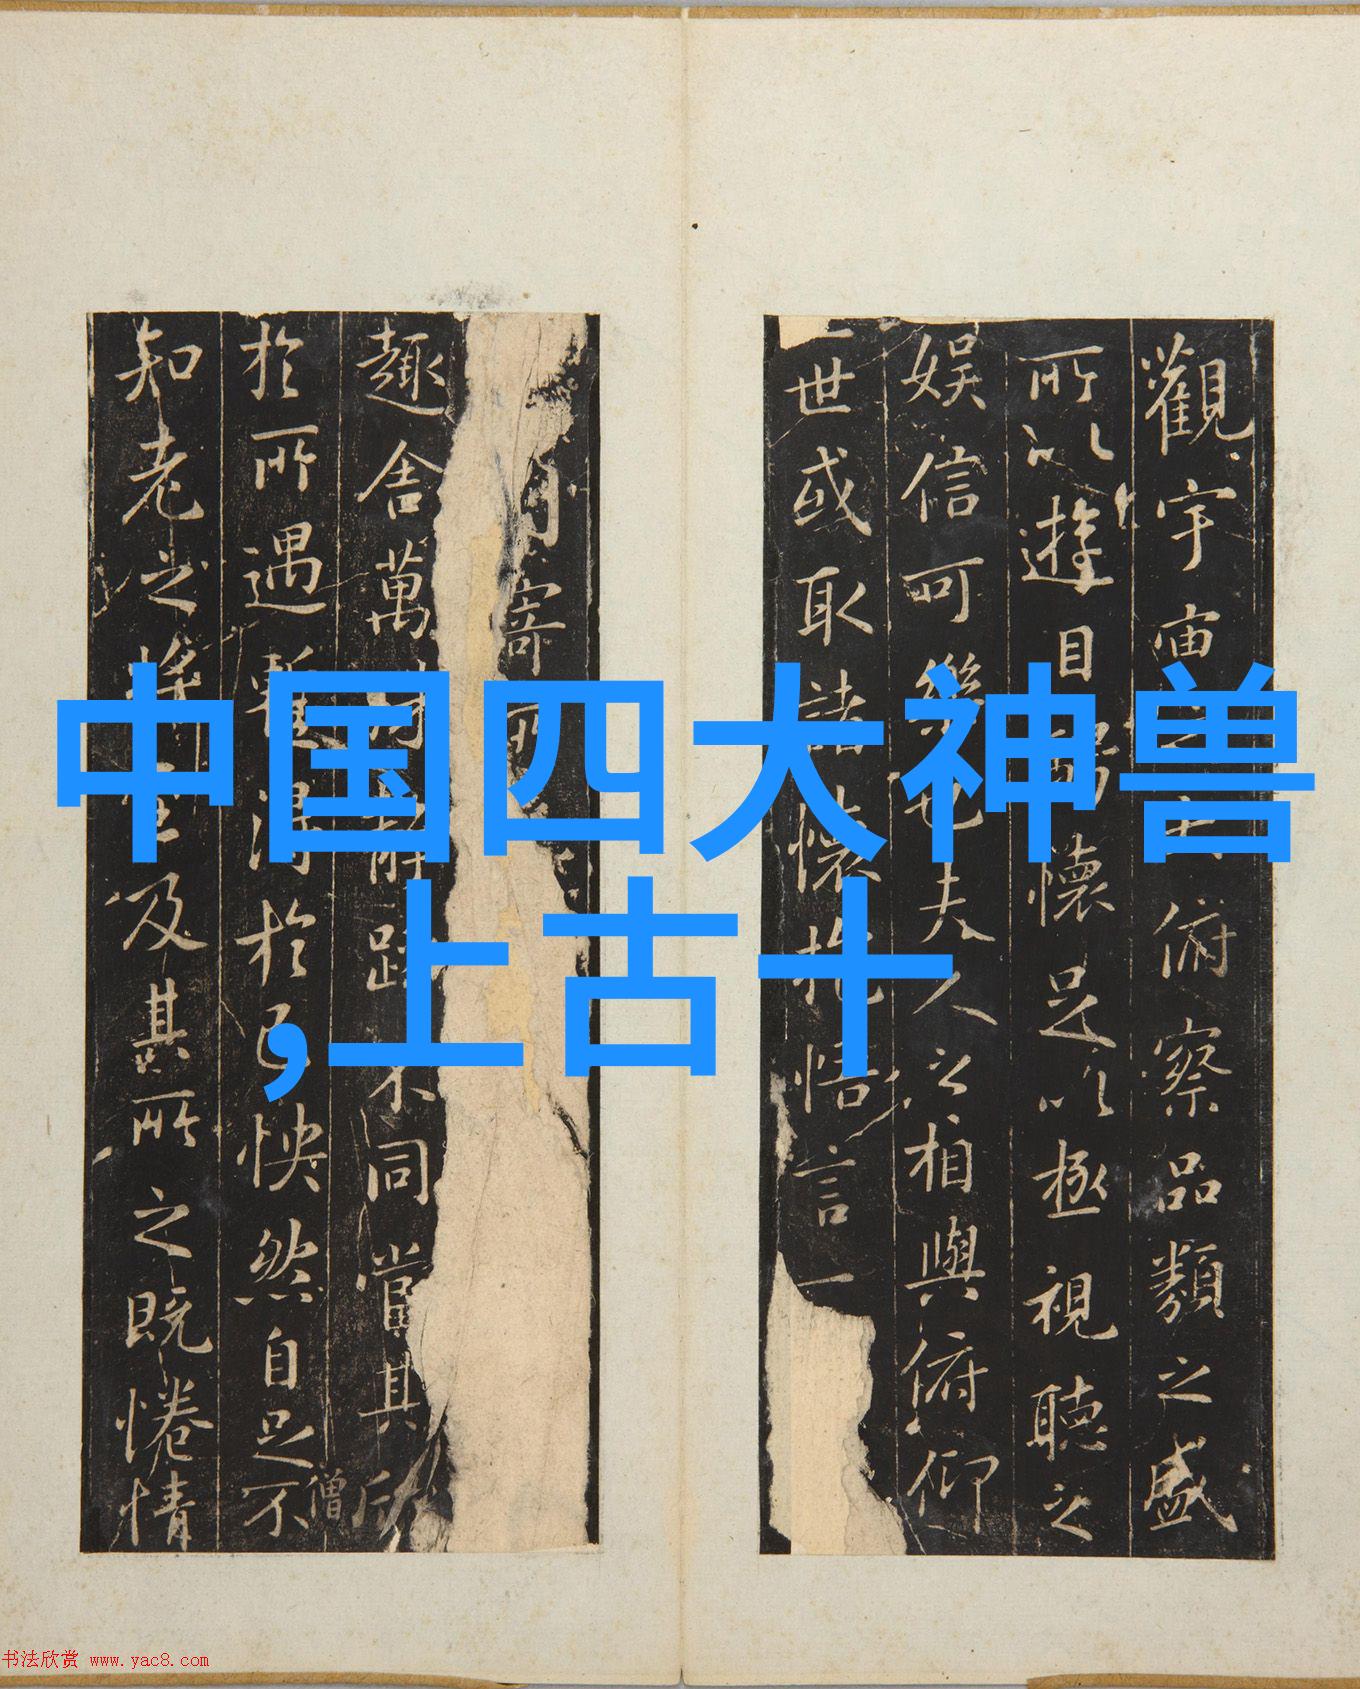 中国四大神兽
,上古十
觀宇宙俯察品類之盛
所以遊目騁懷足以極視聽之
娛信可樂也夫人之相與俯仰
一世或取諸懷抱悟言一
寄所
趣舍萬躁不同當其欣
僧
於所遇暫得於己怏然自足不
知老之將至及其所之既惓情
书法欣赏 www.yac8.com